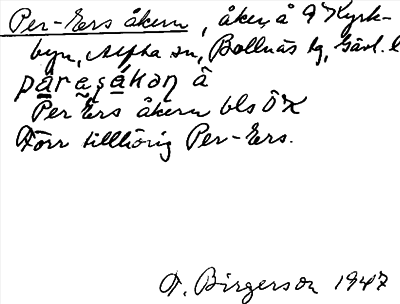 Per-Ers åkern, åker, å 9 Kyrk-
byn, Alfta sn, Bollnäs tg, Gävl. l
pärasåkan å
Per Ers åkern bls ÖK
Förr tillhörig Per-Ers.
A. Birgerson 1947